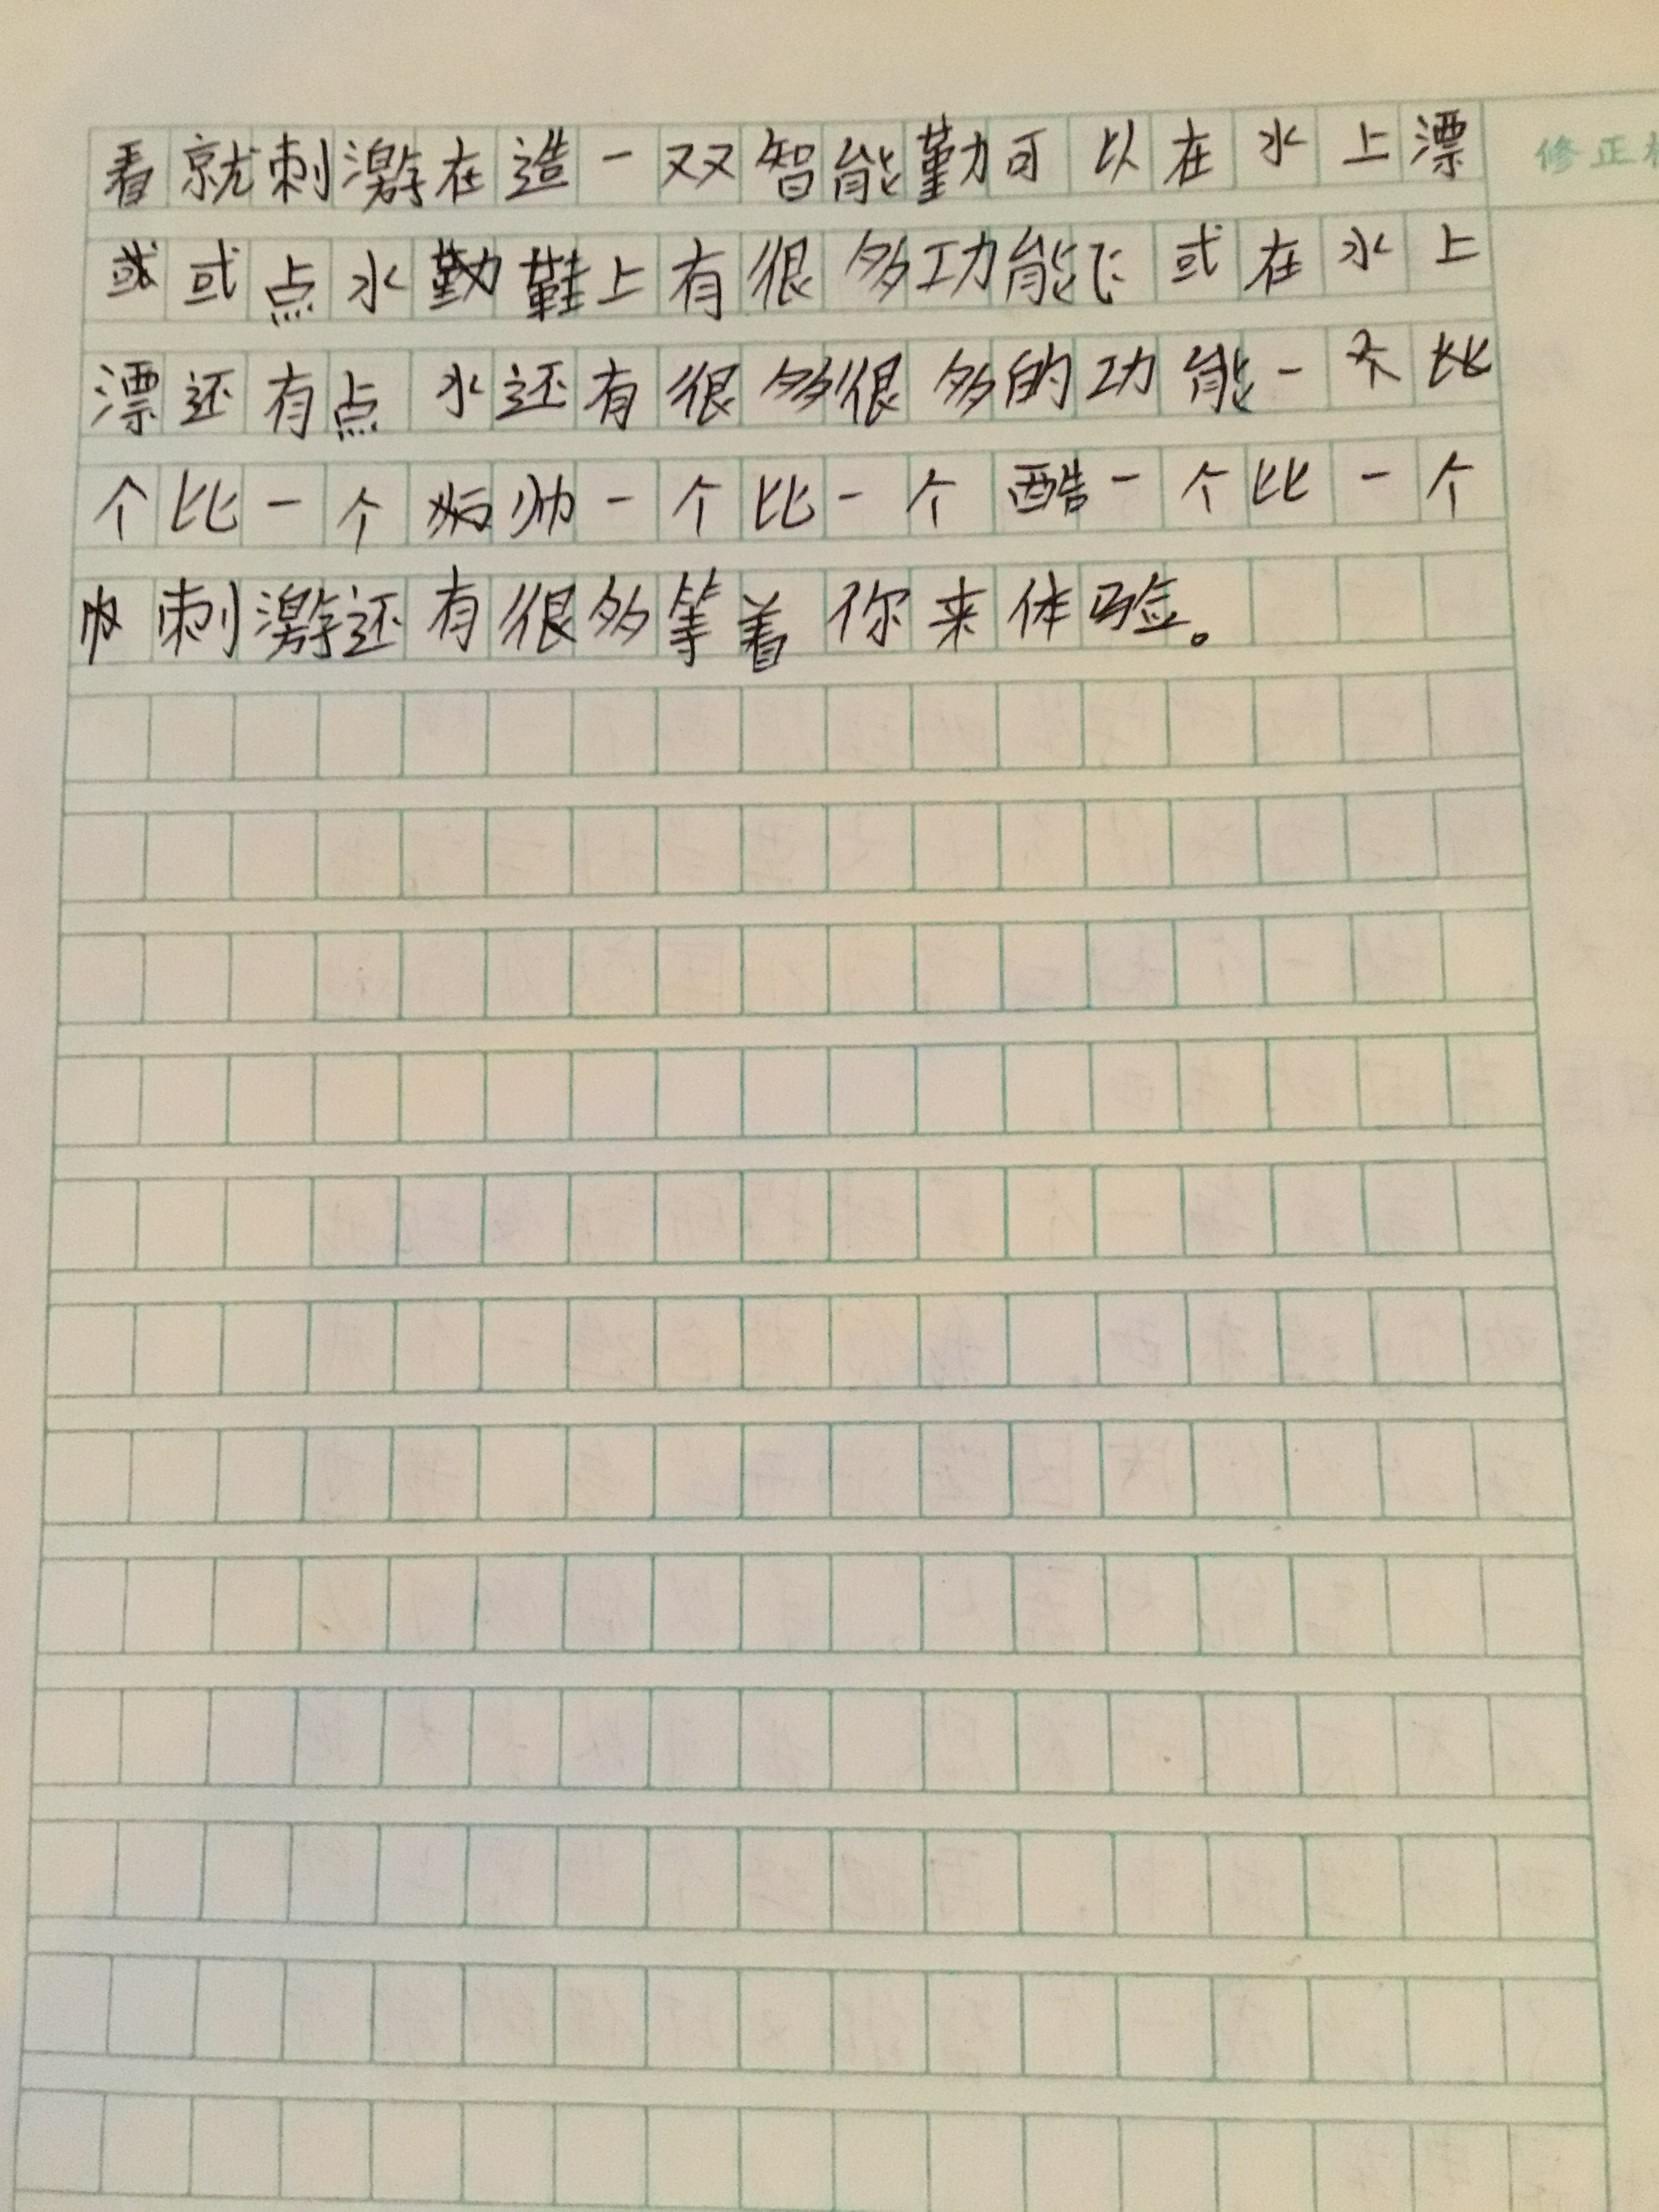 看就刺激在造一双智能勤可以在水上漂
修正
或点水鞋上有很多功能飞或在水上
漂还有点水还有很多很多的功能一个比
个比一个帅一个比一个酷一个比一个
刺激还有很多等着你来体验。